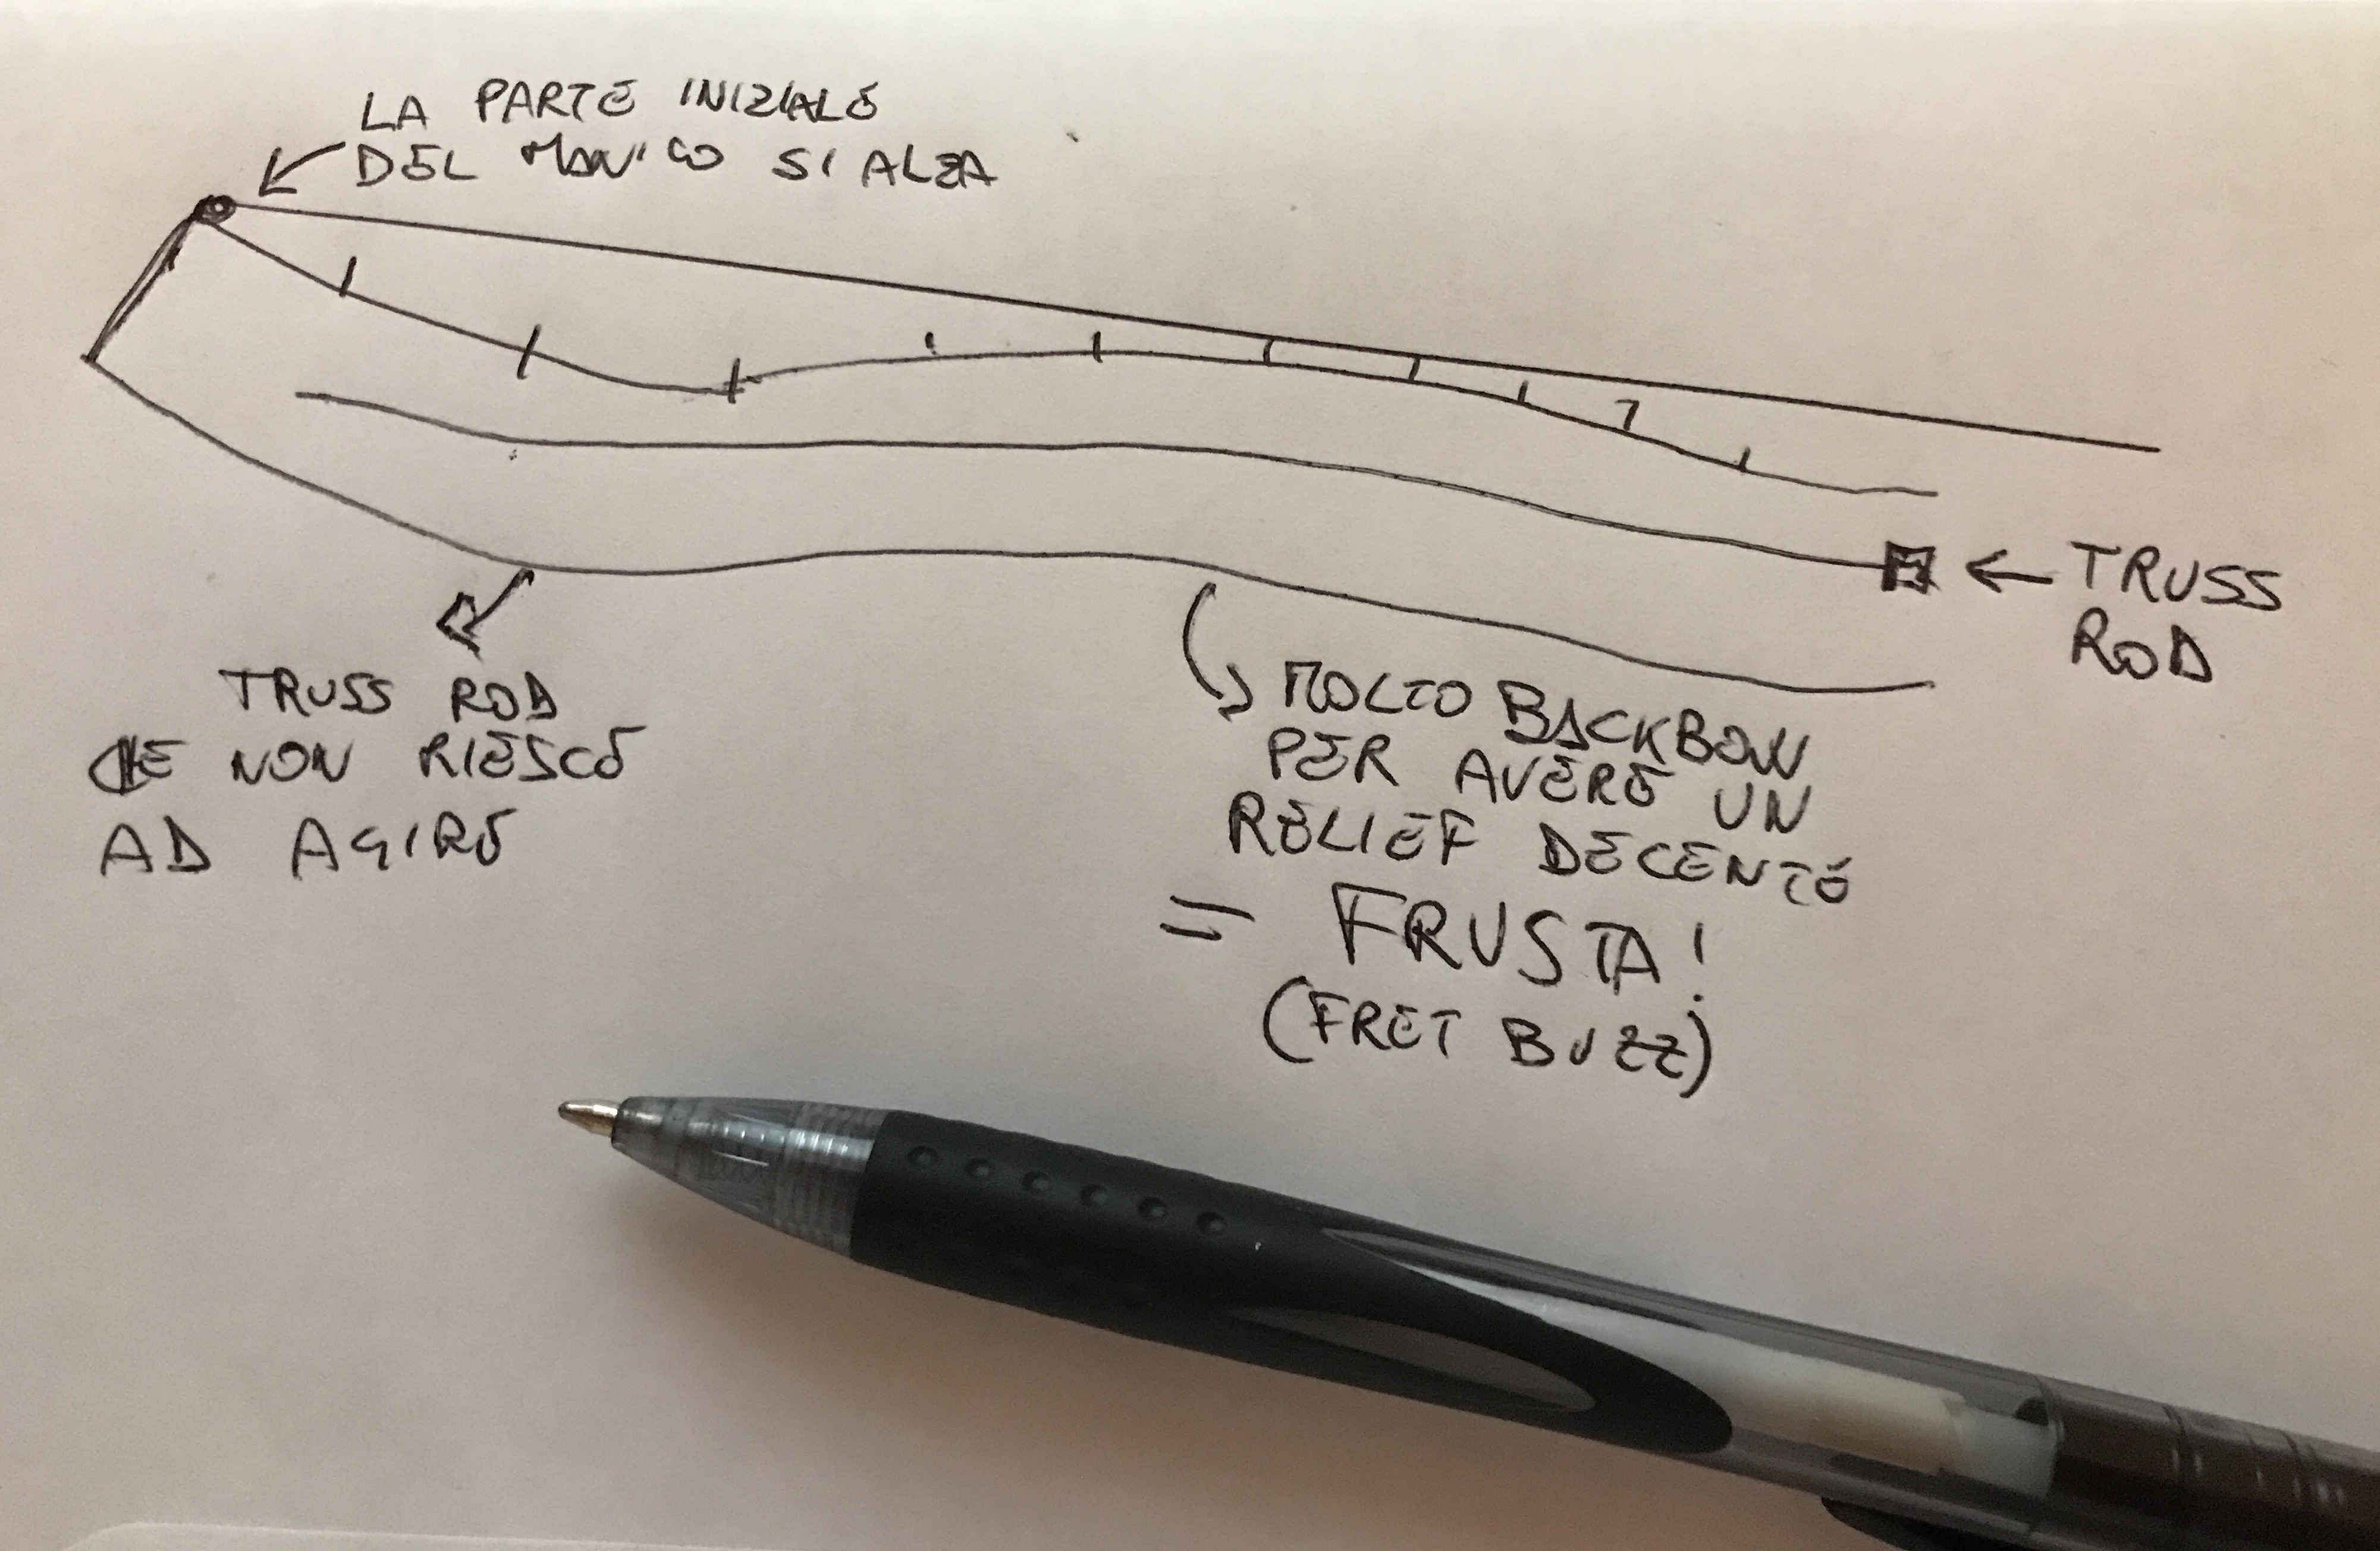 LA PARTE INIZIALE
DEL MANICO SI ALZA
TRUSS
ROD
TRUSS ROD
CHE NON RIESCE
AD AGIRE
MOLTO BACKBOW
PER AVERE UN
RELIEF DECENTE
= FRUSTA!
(FRET BUZZ)